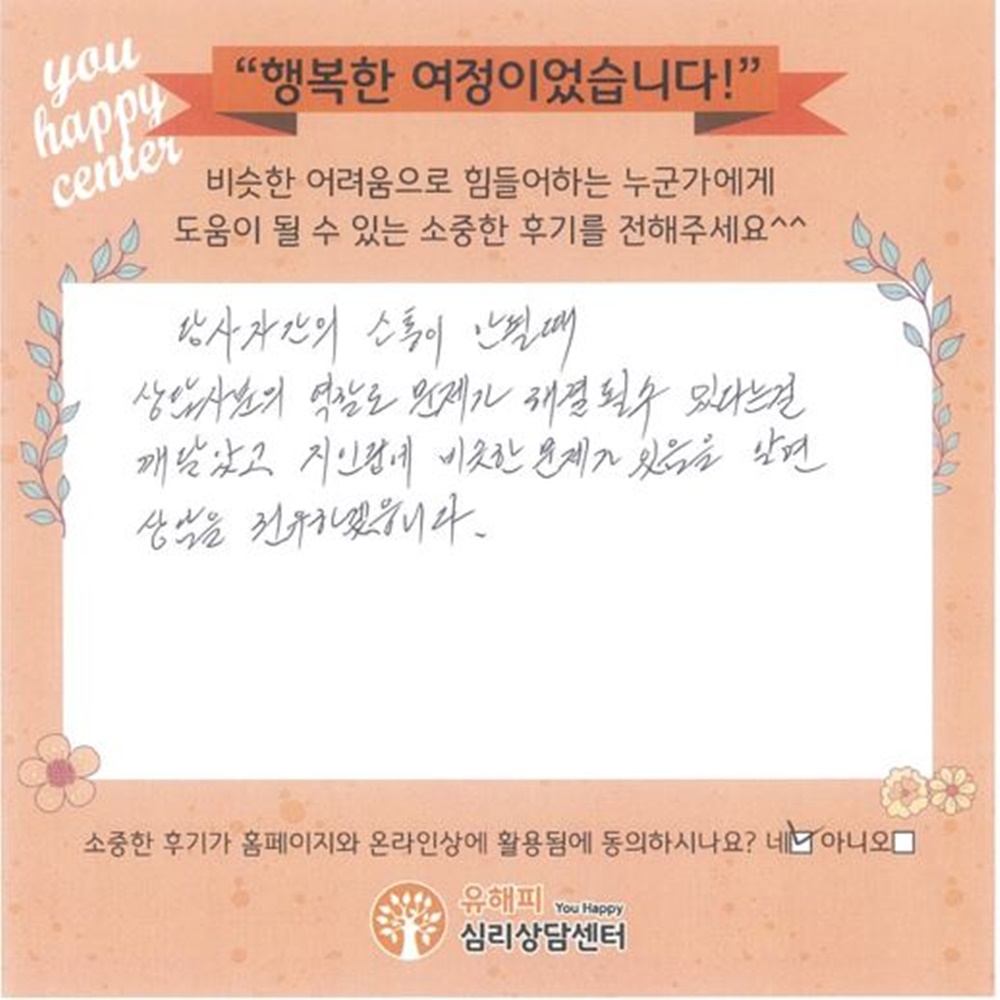 you
happy
center
“행복한 여정이었습니다!”
비슷한 어려움으로 힘들어하는 누군가에게
도움이 될 수 있는 소중한 후기를 전해주세요^^
당사자간의 소통이 안될때
상담사분의 역할로 문제가 해결 될수 있다는걸
깨달았고 지인람에 비슷한 문제가 있음을 알면
상담을 권유하겠습니다.
소중한 후기가 홈페이지와 온라인상에 활용됨에 동의하시나요? 네 아니오
유해피 You Happy
심리상담센터